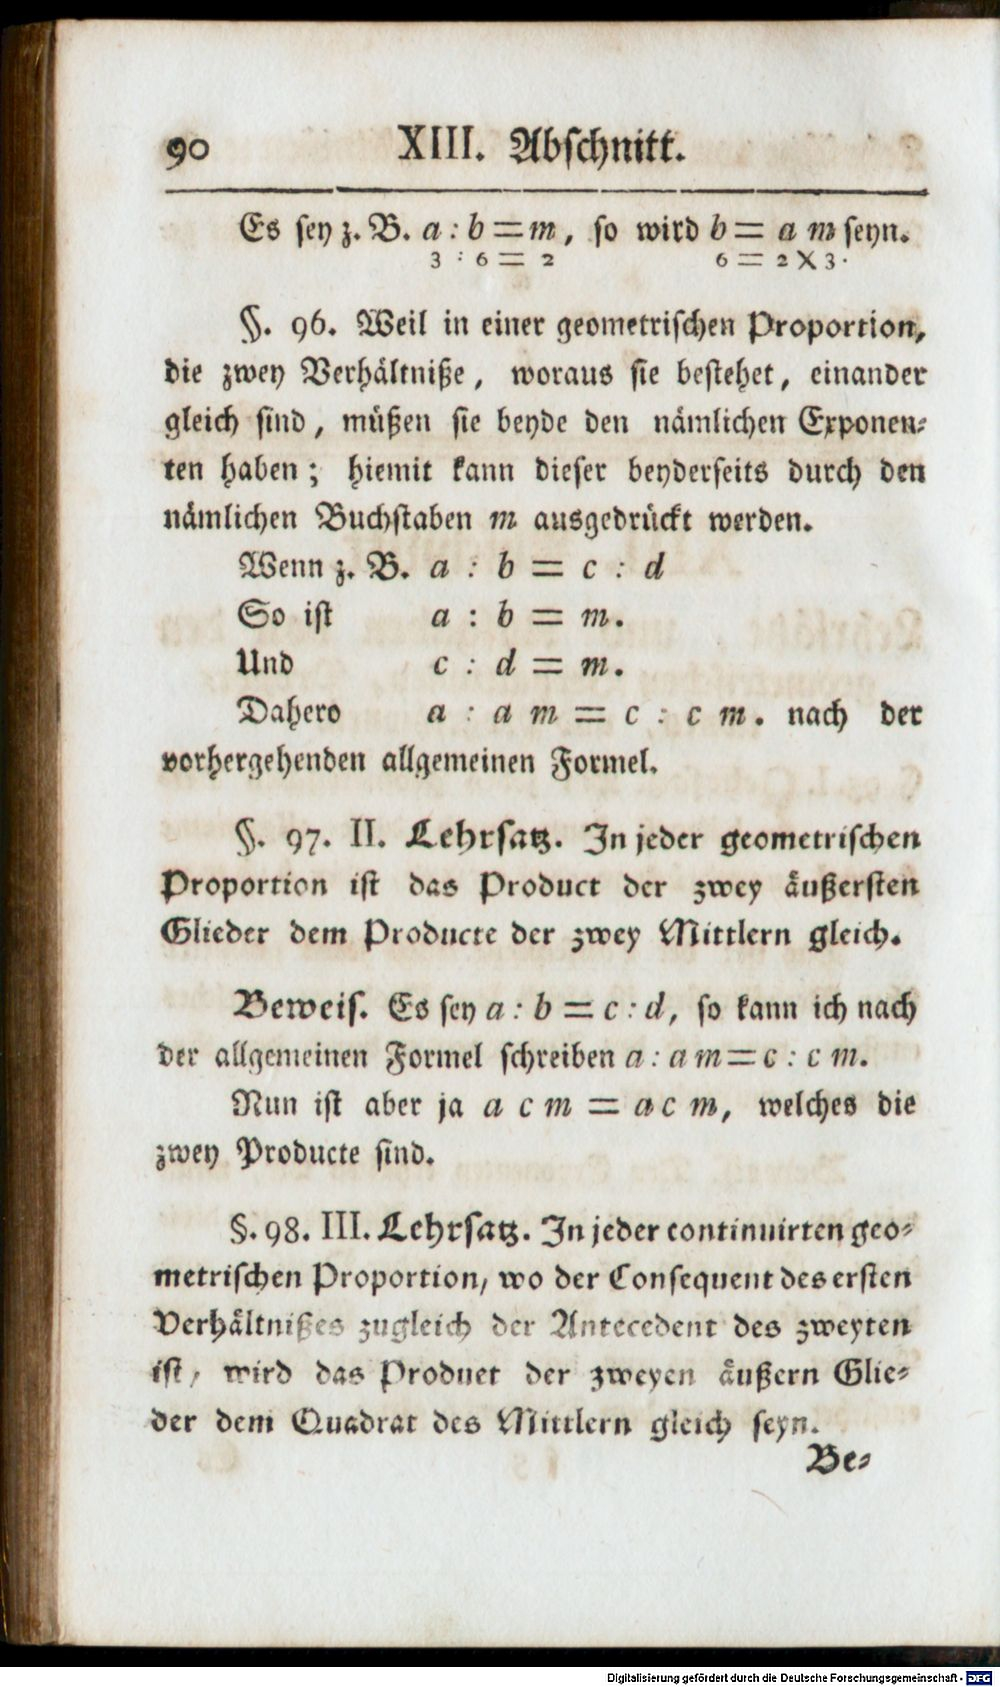 90 XIII. Abschnitt.
Es sey z. B. a : b = m, so wird b = a m seyn.
3 : 6 = 2 6 = 2 X 3.
§. 96. Weil in einer geometrischen Proportion,
die zwey Verhältniße, woraus sie bestehet, einander
gleich sind, müßen sie beyde den nämlichen Exponen-
ten haben; hiemit kann dieser beyderseits durch den
nämlichen Buchstaben m ausgedrückt werden.
Wenn z. B. a : b = c : d
So ist a : b = m.
Und c : d = m.
Dahero a : a m = c : c m. nach der
vorhergehenden allgemeinen Formel.
§. 97. II. Lehrsatz. In jeder geometrischen
Proportion ist das Product der zwey äußersten
Glieder dem Producte der zwey Mittlern gleich.
Beweis. Es sey a : b = c : d, so kann ich nach
der allgemeinen Formel schreiben a : a m = c : c m.
Nun ist aber ja a c m = a c m, welches die
zwey Producte sind.
§. 98. III. Lehrsatz. In jeder continuirten geo-
metrischen Proportion, wo der Consequent des ersten
Verhältnißes zugleich der Antecedent des zweyten
ist, wird das Product der zweyen äußern Glie-
der dem Quadrat des Mittlern gleich seyn.
Be-
Digitalisierung gefördert durch die Deutsche Forschungsgemeinschaft - DFG